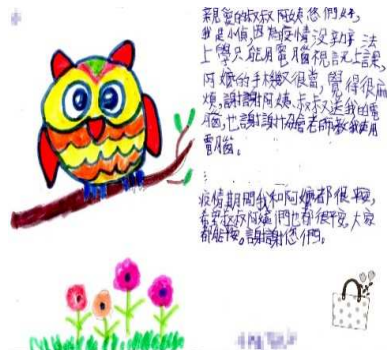 親愛的叔叔阿姨您們好,
我是小偵,因為疫情沒辦法
上學只能用電腦視訊上課,
阿嬤的手機又很當,覺得很麻
煩,謝謝阿姨、叔叔送我的電
腦,也謝謝老師教我使用
電腦。
疫情期間我和阿嬤都很平安,
希望叔叔阿姨們也都很平安,大家
都能平安。謝謝您們。